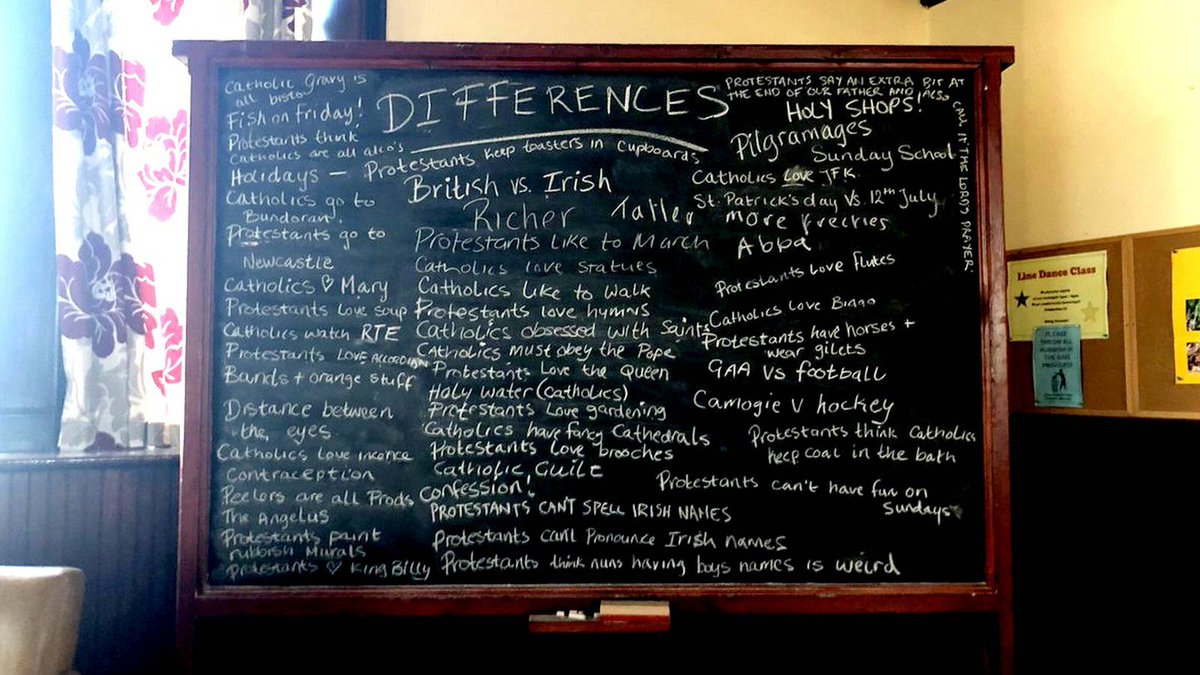 DIFFERENCES
Catholic Gravy is
all bisto
Fish on Friday!
Protestants think
Catholics are all alco's
Holidays -
Catholics go to
Bundoran.
Protestants go to
Newcastle
Catholics ♡ Mary
Protestants love soup
Catholics watch RTE
Protestants LOVE ACCORDIAN
Bands + orange stuff
Distance between
the eyes
Catholics love incence
Contraception
Peelers are all Prods
The Angelus
Protestants paint
rubbish Murals
Protestants ♡ King Billy
Protestants keep toasters in cupboards
British vs. Irish
Richer Taller
Protestants like to March
Catholics love statues
Catholics like to walk
Protestants love hymns
Catholics obsessed with Saints
Catholics must obey the Pope
Protestants Love the Queen
Holy water (Catholics)
Protestants Love gardening
Catholics have fancy Cathedrals
Protestants love brooches
Catholic Guilt
Confession!
PROTESTANTS CAN'T SPELL IRISH NAMES
Protestants can't Pronounce Irish names
Protestants think nuns having boys names is weird
PROTESTANTS SAY AN EXTRA BIT AT
THE END OF OUR FATHER AND ALSO
CALL IT THE LORDS PRAYER.
HOLY SHOPS!
Pilgramages
Sunday School
Catholics love JFK
St. Patrick's day vs. 12th July
more freckles
Abba
Protestants Love Flutes
Catholics Love Bingo
Protestants have horses +
wear gilets
GAA vs football
Camogie V hockey
Protestants think Catholics
keep coal in the bath
Protestants can't have fun on
Sundays
Line Dance Class